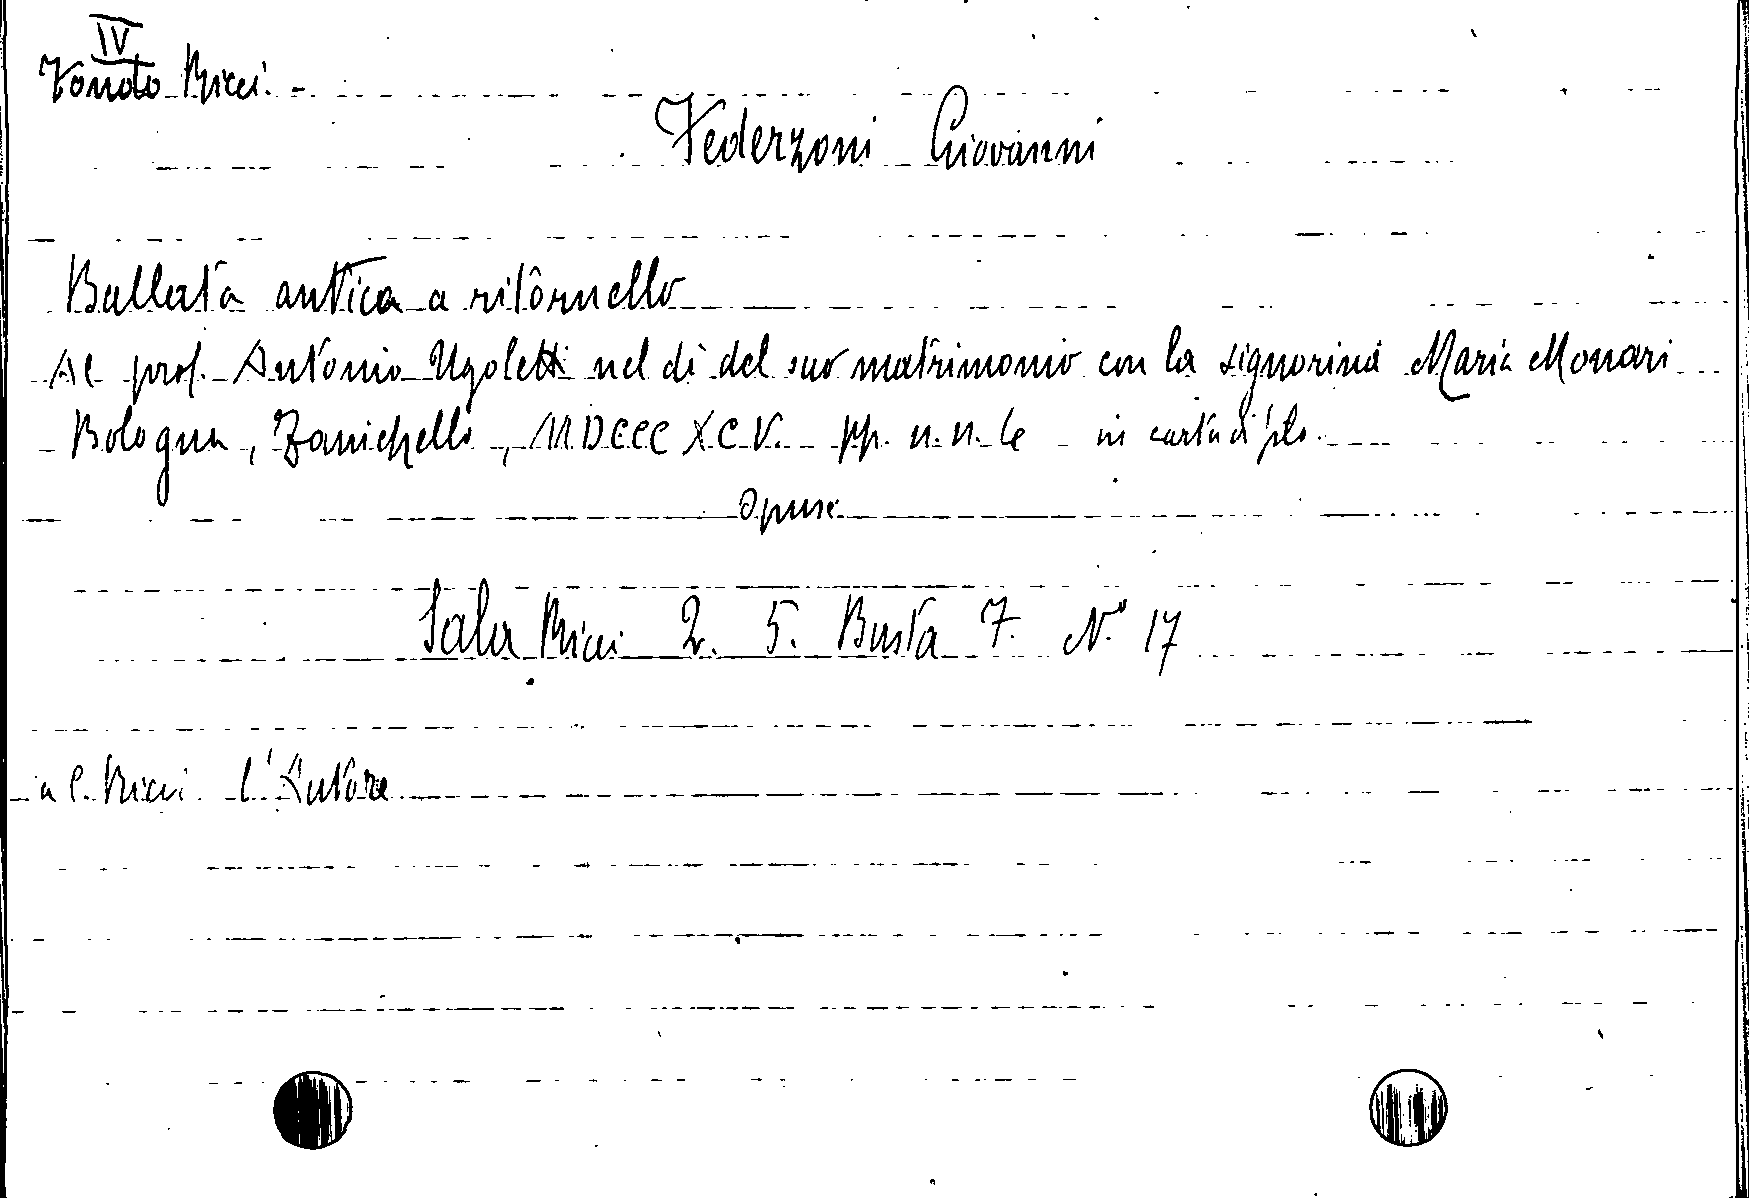 IV
Fondo Ricci. -
Federzoni Giovanni
Ballata antica a ritornello
Al prof. Antonio Ugoletti nel dì del suo matrimonio con la signorina Maria Monari
Bologna, Zanichelli, MDCCCXCV. pp. n.n. 6 in carta di filo.
Opusc.
Sala Ricci 2. 5. Busta 7. N.° 17
a C. Ricci l'Autore